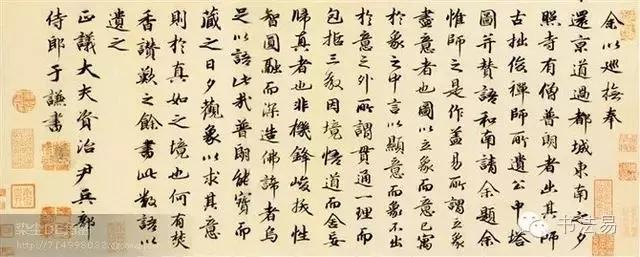 余以巡撫奉
還京道過都城東南之夕
照寺有僧普朗者出其師
古拙俊禪師所遺公中塔
圖并贊語和南請余題余
惟師之是作蓋易所謂立象
盡意者也圖以立象而意已寓
於象之中言以顯意而象不出
於意之外所謂貫通一理而
包括三教因境悟道而舍妄
歸真者也非機鋒峻拔性
智圓融而深造佛諦者烏
足以語此哉普朗能寶而
藏之日夕觀象以求其意
則於真如之境也何有焚
香讚歎之餘書此數語以
遺之
正議大夫資治尹兵部
侍郎于謙書
书法易